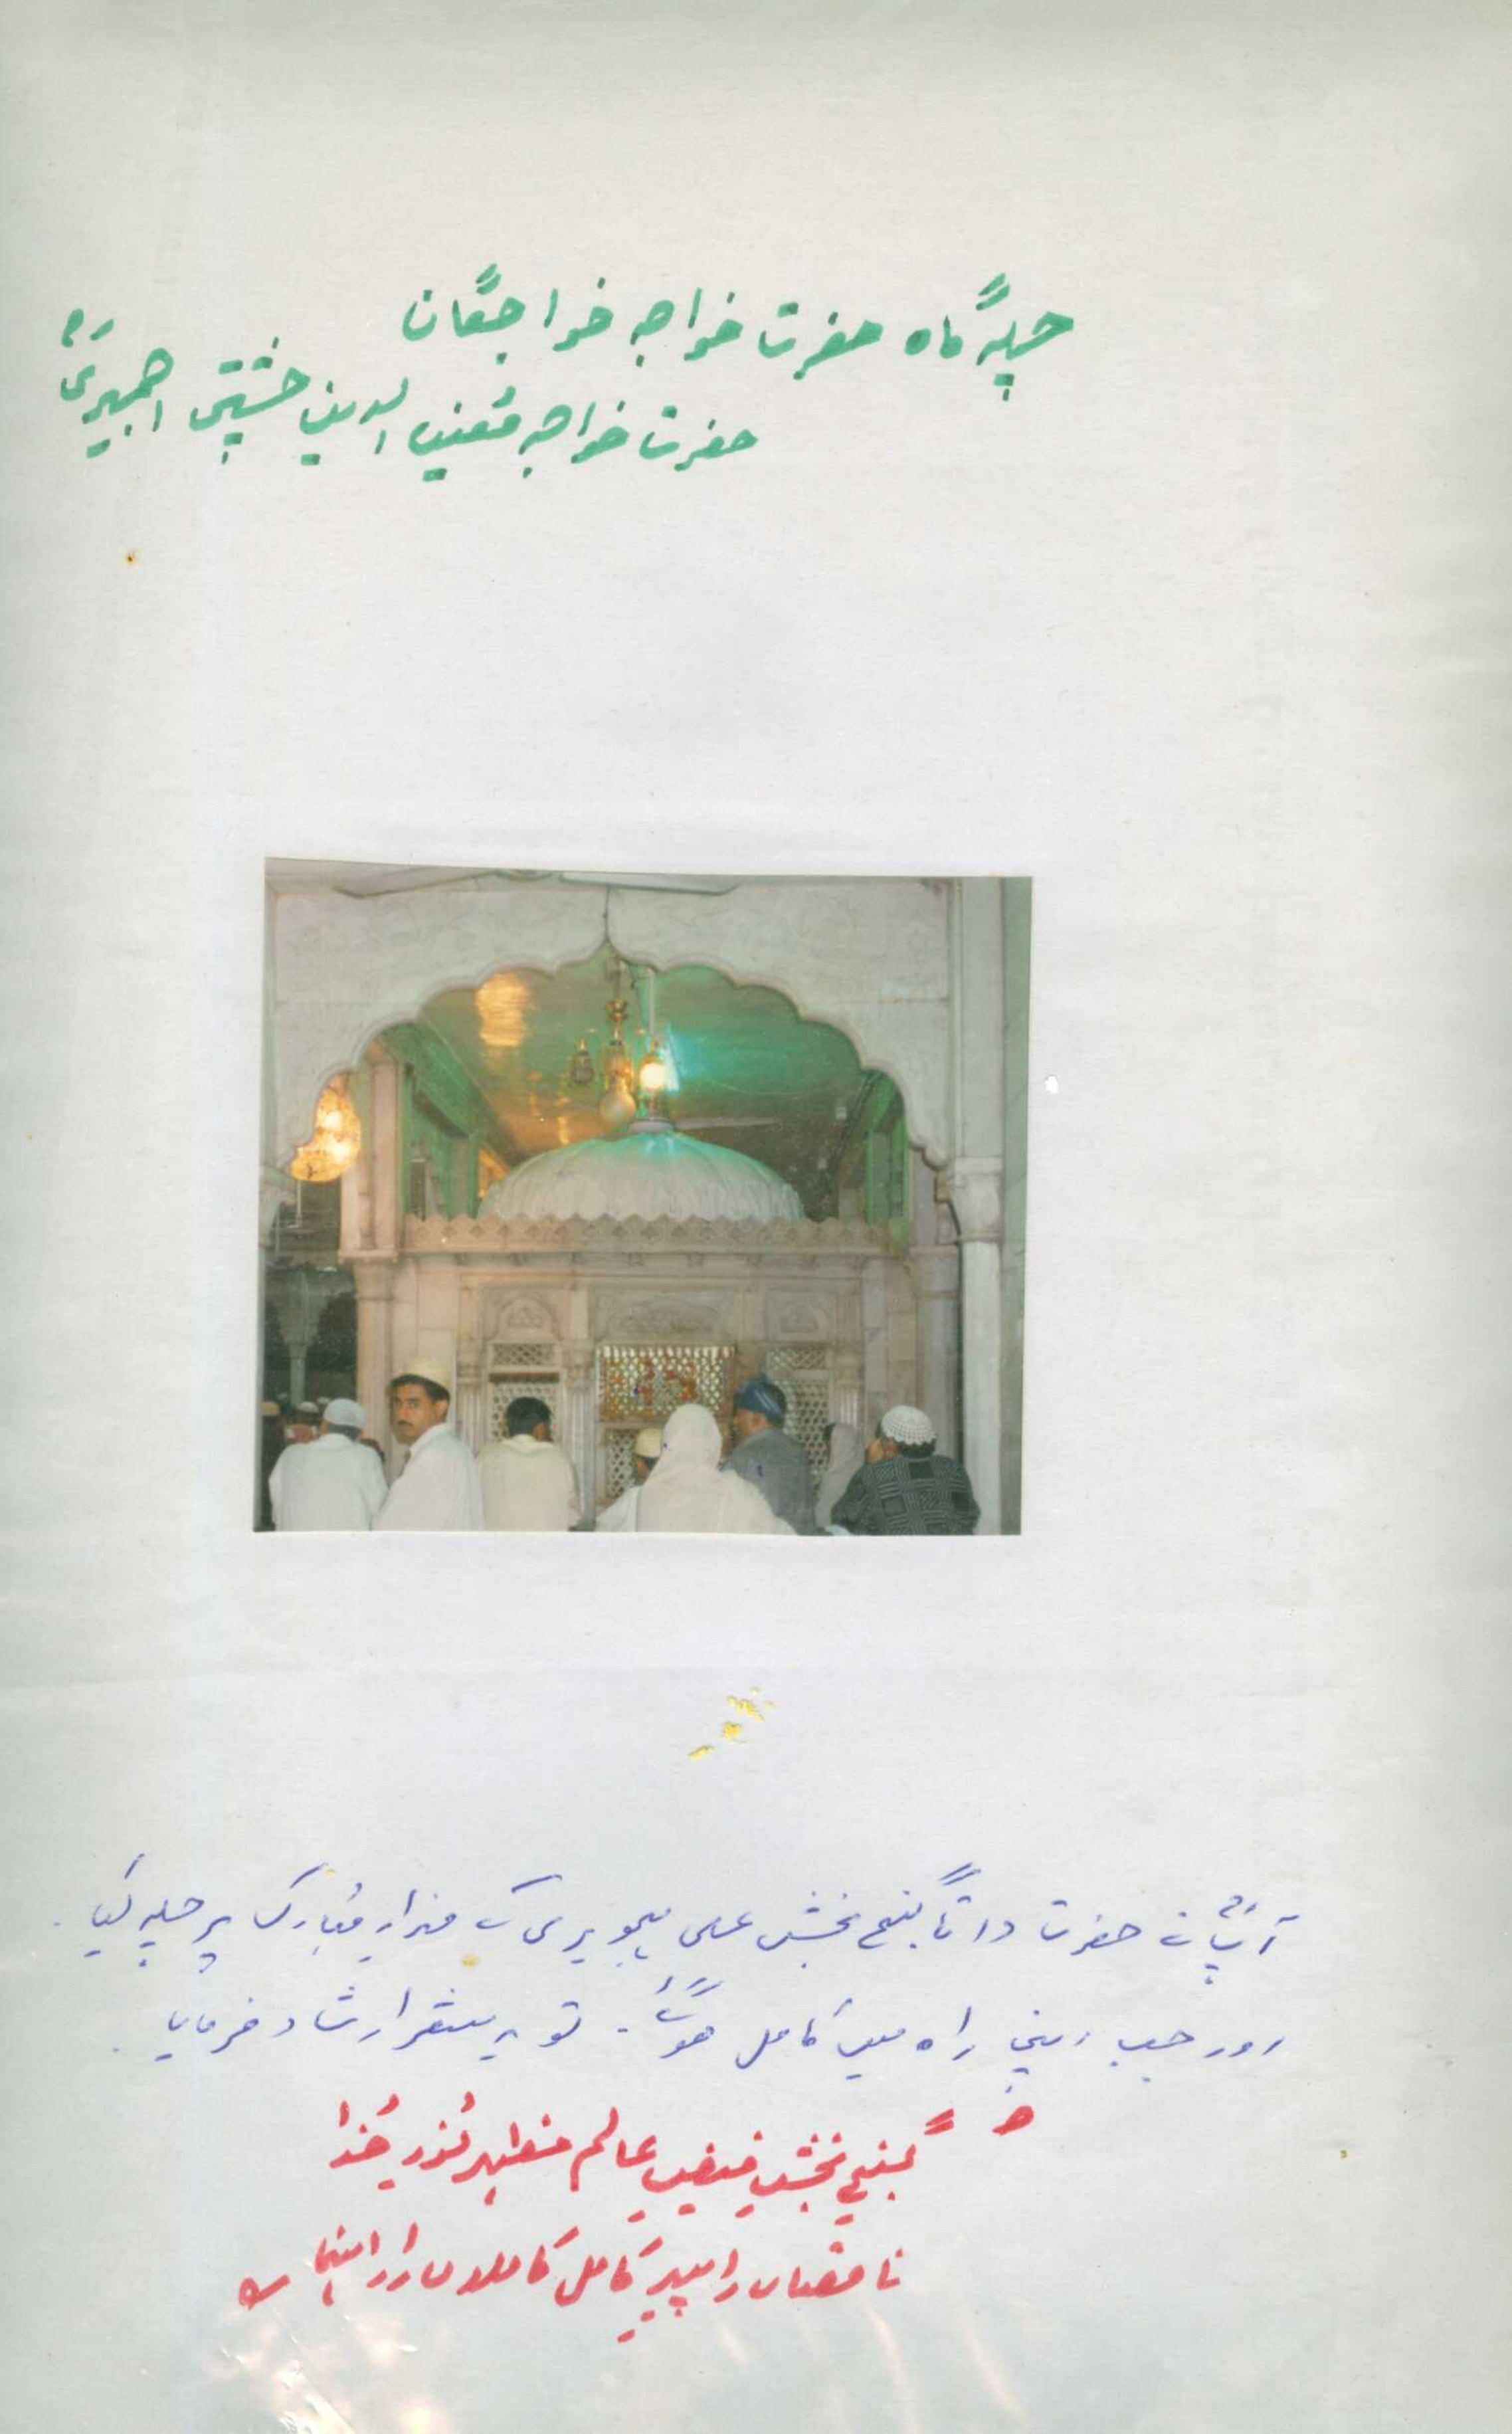 چلہ گاہ حضرت خواجہ خواجگان
حضرت خواجہ مُعین الدین چشتی اجمیریؒ
آپؒ نے حضرت داتا گنج بخش علی ہجویری کے مزارِ مُبارک پر چلہ کیا۔
اور جب اپنی راہ میں کامل ہو گئے۔ تو یہ شعر ارشاد فرمایا۔
گنج بخش فیضِ عالم مظہر نورِ خُدا
ناقصاں را پیرِ کامل کاملاں را راہنما